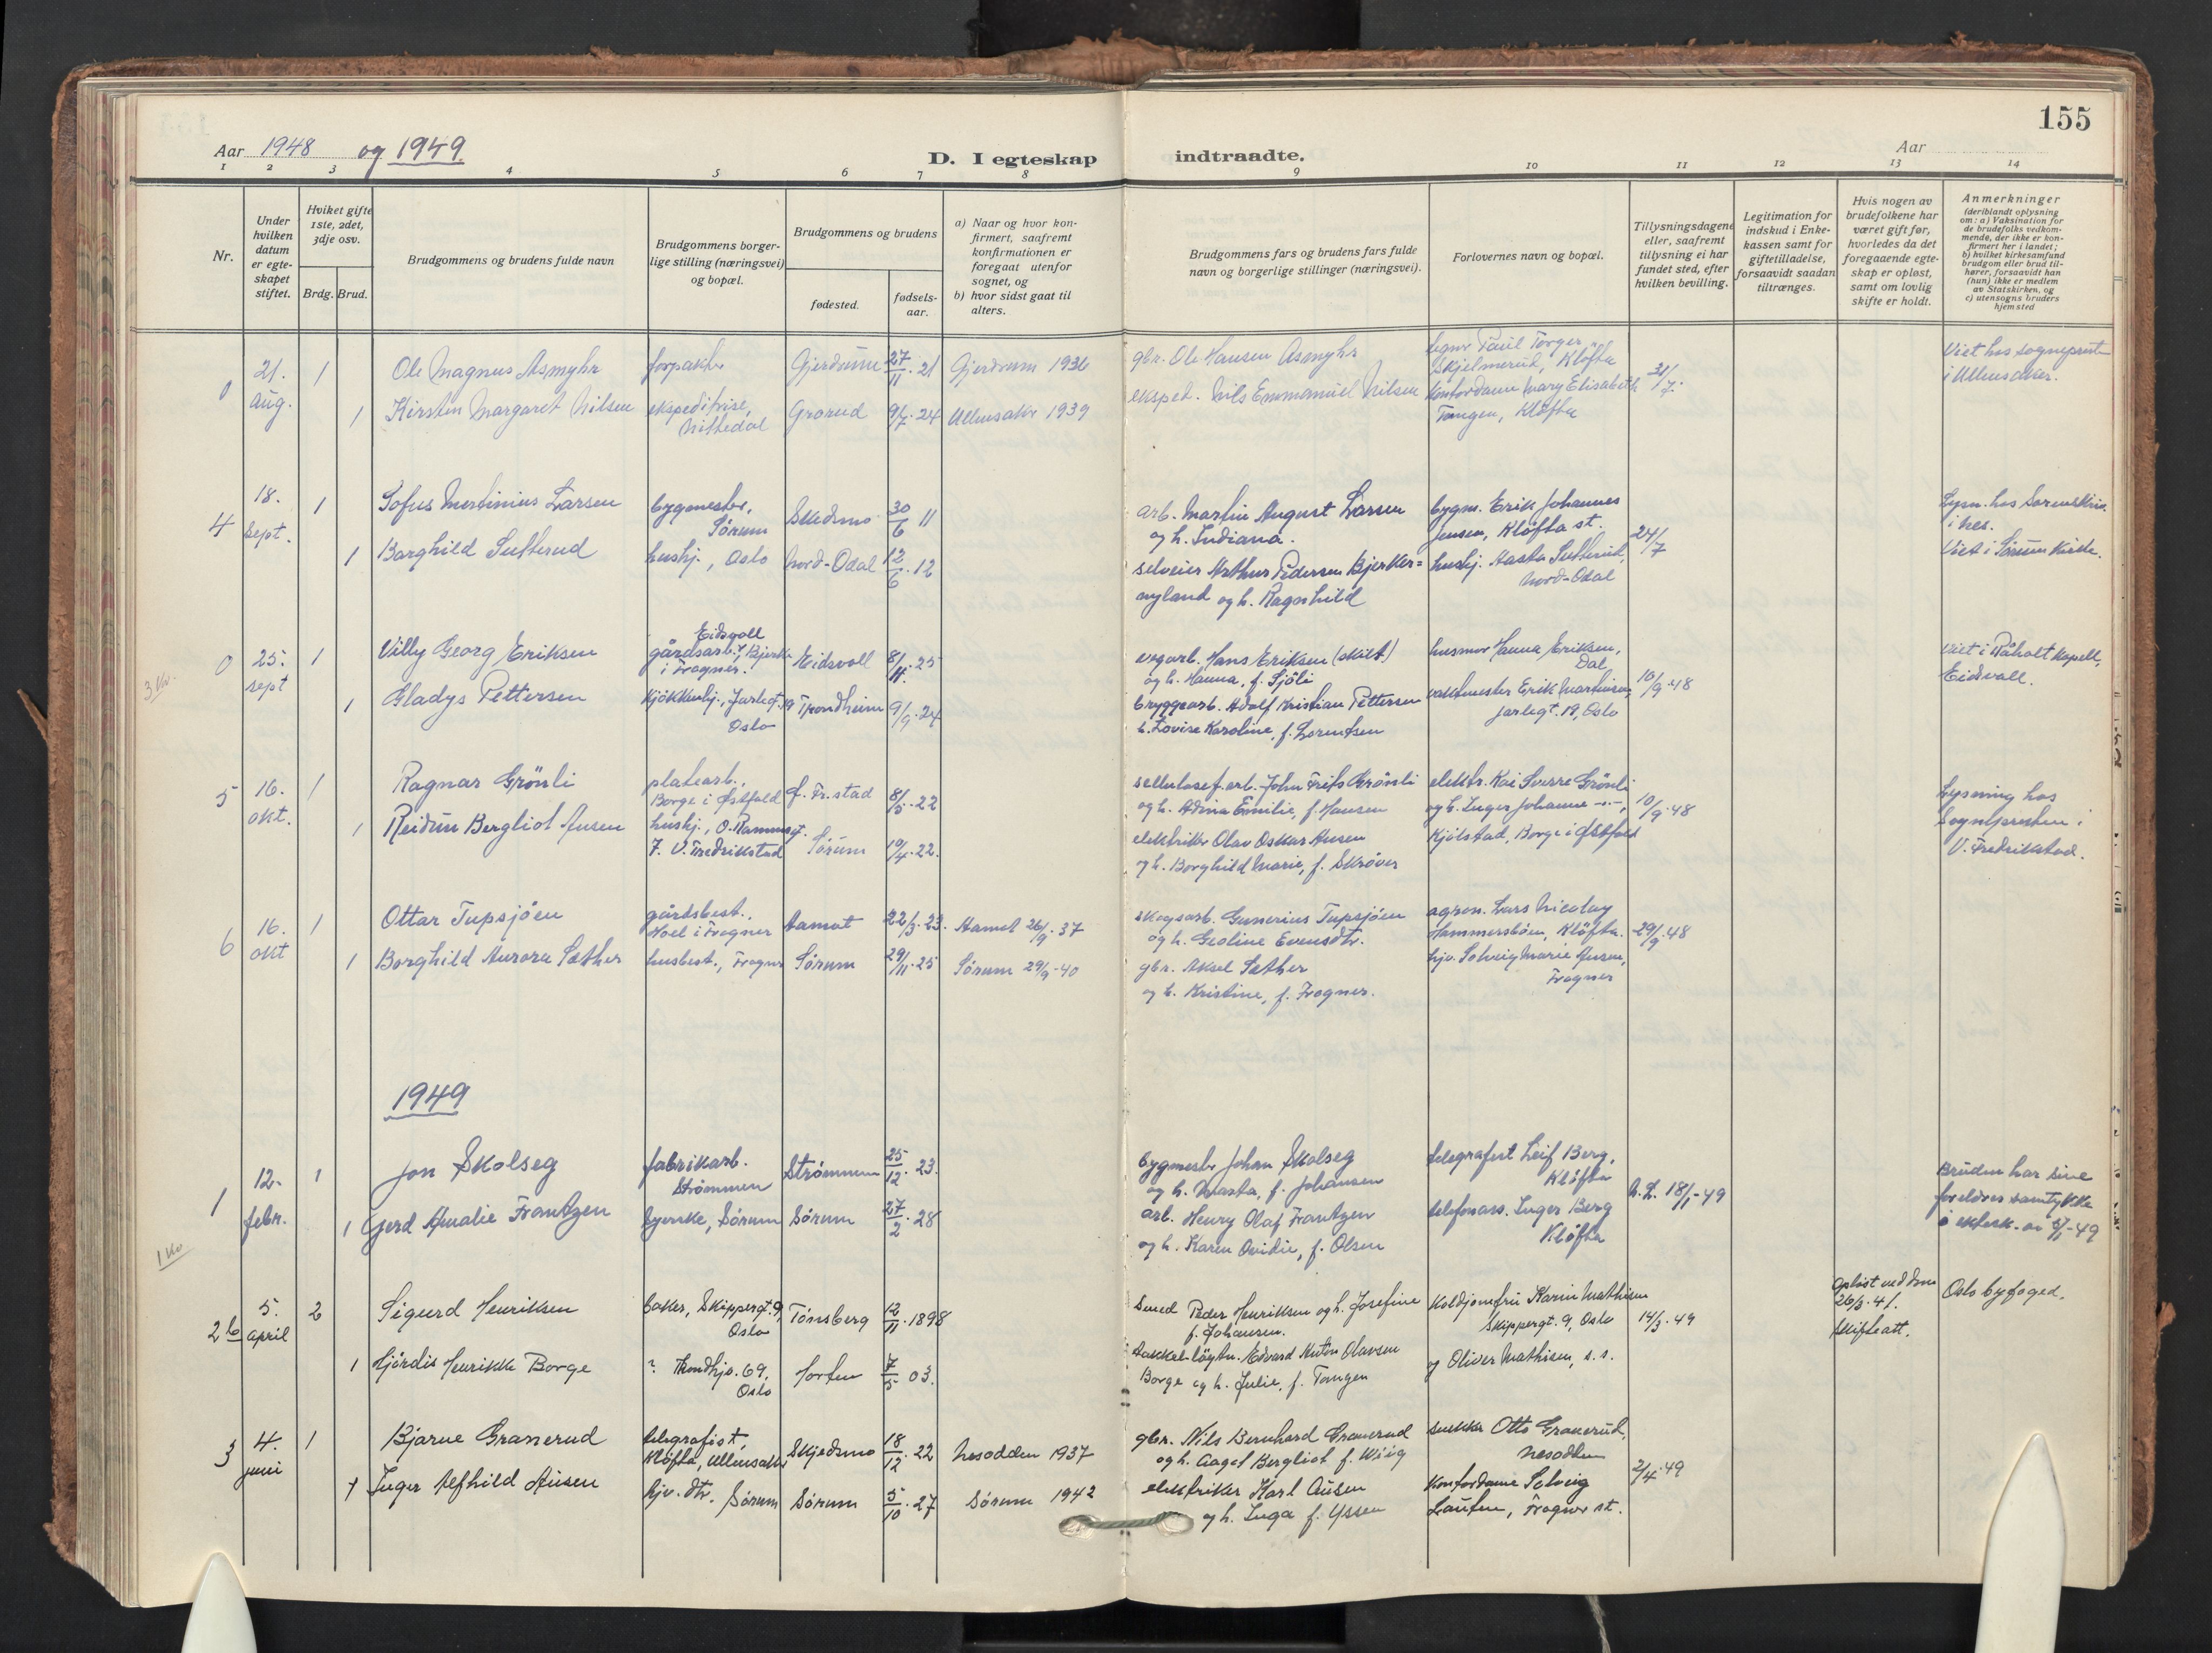 155
Aar 1948 og 1949.
D. I egteskap indtraadte.
Aar
1 2 3 4 5 6 7 8 9 10 11 12 13 14
Nr.
Under hvilken datum er egteskapet stiftet.
Hviket gifte 1ste, 2det, 3dje osv.
Brdg. Brud.
Brudgommens og brudens fulde navn
Brudgommens borgerlige stilling (næringsvei) og bopæl.
Brudgommens og brudens
fødested.
fødselsaar.
a) Naar og hvor konfirmert, saafremt konfirmationen er foregaat utenfor sognet, og
b) hvor sidst gaat til alters.
Brudgommens fars og brudens fars fulde navn og borgerlige stillinger (næringsvei).
Forlovernes navn og bopæl.
Tillysningsdagene eller, saafremt tillysning ei har fundet sted, efter hvilken bevilling.
Legitimation for indskud i Enkekassen samt for giftetilladelse, forsaavidt saadan tiltrænges.
Hvis nogen av brudefolkene har været gift før, hvorledes da det foregaaende egteskap er opløst, samt om lovlig skifte er holdt.
Anmerkninger
(deriblandt oplysning om: a) Vaksination for de brudefolks vedkommende, der ikke er konfirmert her i landet;
b) hvilket kirkesamfund brudgom eller brud tilhører, forsaavidt han (hun) ikke er medlem av Statskirken, og
c) utensogns bruders hjemsted
0 21. aug. 1 Ole Magnus Asmyhr forpakter Gjerdrum 27/11 21 Gjerdrum 1936
gbr. Ole Hansen Asmyhr
Paul Torger Skjelmerud, Kløfta
31/7.
Viet hos sogneprest i Ullensaker.
1 Kirsten Margaret Nilsen ekspeditrise, Nittedal Grorud 9/7. 24 Ullensaker 1939
ekspet. Nils Emmanuel Nilsen
kontordame Mary Elisabeth Tangen, Kløfta
4 18. sept. 1 Sofus Martinius Larsen bygmester, Sørum Skedsmo 30/6 11
arb. Martin August Larsen og h. Indiana.
bygm. Erik Johannes Jensen, Kløfta st.
24/7
Lysn. hos Sorenskriv. i Nes.
Viet i Sørum Kirke.
1 Borghild Sutterud hushj., Oslo Nord-Odal 12/6. 12
selveier Arthur Pedersen Bjerkernyland og h. Ragnhild
hushj. Aasta Sutterud, Nord-Odal
3 kv.
0 25. sept 1 Villy Georg Eriksen Eidsvoll gårdsarb., Bjerke i Frogner. Eidsvoll 8/11. 25
vegarb. Hans Eriksen (skilt) og h. Hanna, f. Sjöli
husmor Hanna Eriksen, Dal
10/9-48
Viet i Råholt kapell, Eidsvoll.
1 Gladys Pettersen kjökkenhj., Jarlegt. 19 Oslo Trondheim 9/9. 24
bryggearb. Adolf Kristian Pettersen h. Lovise Karoline, f. Lorentsen
vaktmester Erik Martinsen, Jarlegt. 19, Oslo
5 16. okt. 1 Ragnar Grönli platearb., Borge i Østfold f. Fr.stad 8/5. 22
sellulosef.arb. John Frits Grönli og h. Adina Emilie, f. Hansen
elektr. Kai Sverre Grönli og h. Inger Johanne -"-, Kjölstad, Borge i Østfold
10/9-48
Lysning hos Sognepresten i V. Fredrikstad.
1 Reidun Bergliot Ausen hushj., O. Rammsgt. 7. V. Fredrikstad Sörum 19/4. 22.
elektriker Olav Oskar Ausen og h. Borghild Marie, f. Skröver
6 16. okt 1 Ottar Tupsjöen gårdsbest., Noel i Frogner Aamot 22/3. 23. Aamot 26/9. 37
skogsarb. Gunerius Tupsjöen og h. Geoline Evensdtr.
agron. Lars Nicolay Hammersböen, Kløfta.
29/9-48
1 Borghild Aurora Sæther husbest., Frogner Sörum 29/11. 25 Sörum 29/9-40
gbr. Aksel Sæther og h. Kristine, f. Frogner.
hjv. Solveig Marie Ausen, Frogner
1949
1 12. febr. 1 Jon Skolseg fabrikarb. Strömmen Strömmen 25/12. 23.
bygmestr Johan Skolseg og h. Marta, f. Johansen
telegrafist Leif Berg, Kløfta
h. L. 18/1-49
Bruden har sine foreldres samtykke
1 Gerd Amalie Frantzen syerske, Sörum Sörum 27/2. 28
arb. Henry Olaf Frantzen og h. Karen Ovidie, f. Olsen
telefonass. Inger Berg Kløfta
1 kv
2 b 5. april 2 Sigurd Henriksen baker, Skippergt. 9, Oslo Tönsberg 12/11. 1898
Smed Peder Henriksen og h. Josefine f. Johansen.
Koldjomfru Karin Mathisen Skippergt. 9, Oslo
14/3. 49
Opløst ved dom 26/3. 41. Skifteatt.
Oslo byfoged.
1 Hjördis Henrikke Borge ? Trondhjv. 69, Oslo Horten 7/5 03.
Edvard Anton Olavsen Borge og h. Julie, f. Tangen
og Oliver Mathisen, s. s.
3 4. juni 1 Bjarne Granerud telegrafist, Kløfta, Ullensaker Skjedsmo 18/12. 22 Nesodden 1937
gbr. Nils Bernhard Granerud og h. Aagot Bergliot f. Wiig
Otto Granerud, Nesodden
2/4-49
1 Inger Alfhild Ausen hjv. dtr. Sörum Sörum 5/10. 27 Sörum 1942
elektriker Karl Ausen og h. Inga f. Yssen
Kontordame Solveig Lauten, Frogner st.